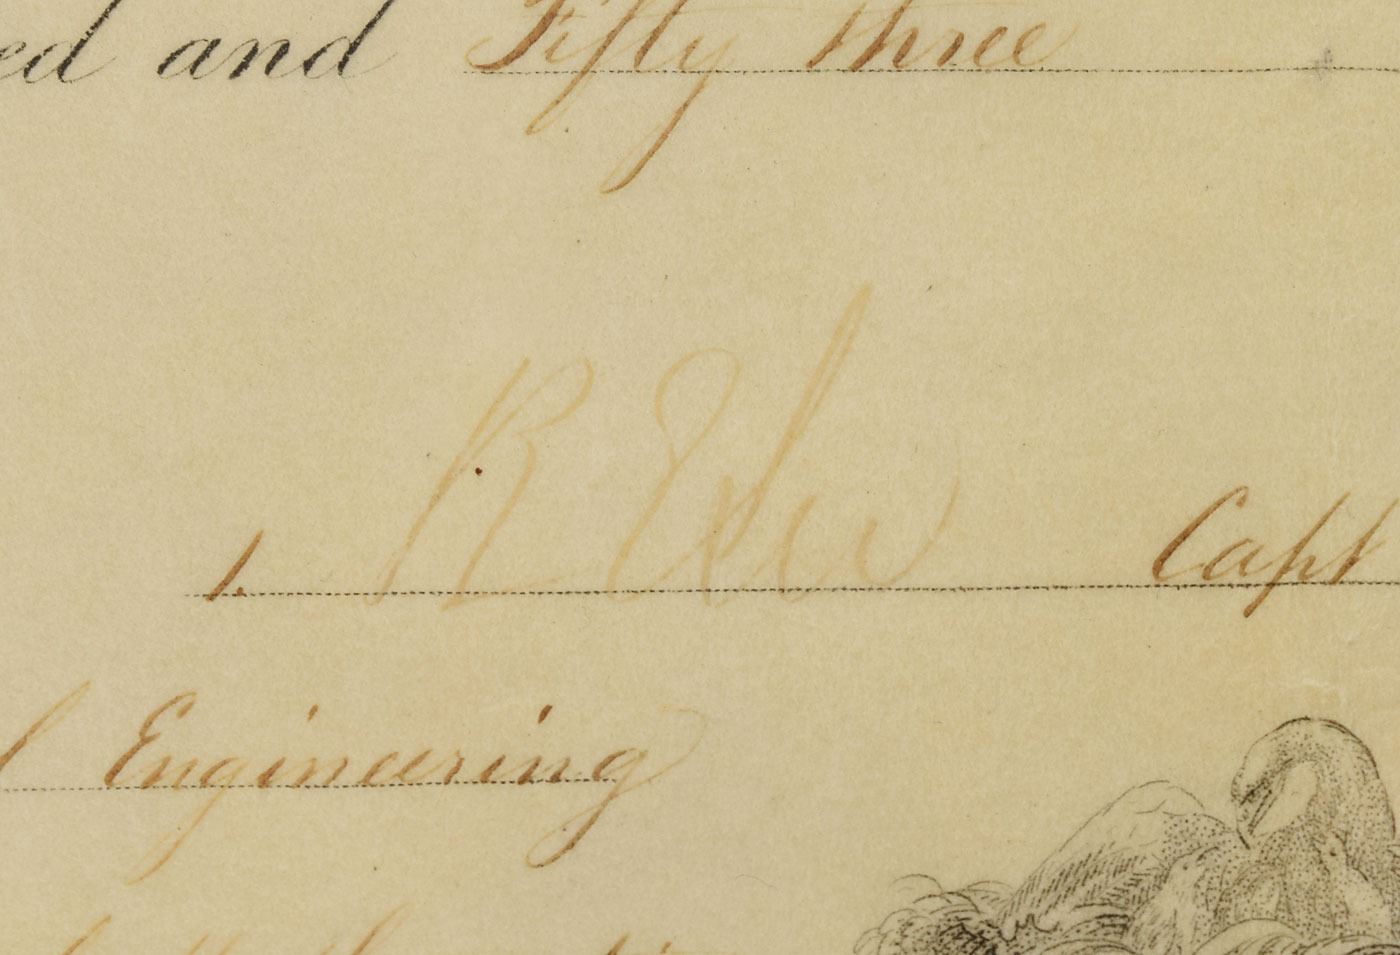 ed and Fifty three
1. R E Lee Capt
l Engineering